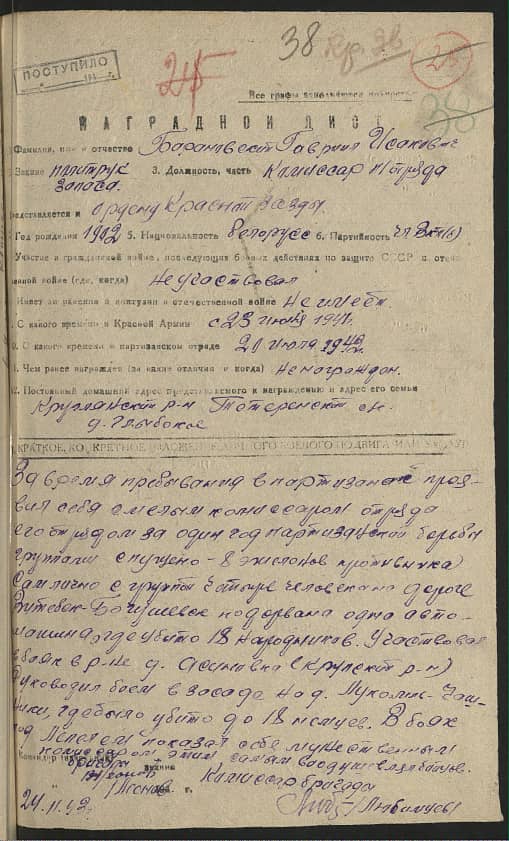 38 Кр. Зв
25
25
38
ПОСТУПИЛО
Все графы заполняются полностью
НАГРАДНОЙ ЛИСТ
Фамилия, имя и отчество Гаврил Исакович
Звание политрук запаса. 3. Должность, часть Комиссар п/отряда
представляется к ордену Красной Звезды.
Год рождения 1902 5. Национальность белорусс 6. Партийность чл ВКП(б)
Участие в гражданской войне, последующих боевых действиях по защите СССР и отече-
ственной войне (где, когда) не участвовал
Имеет ли ранения и контузии в отечественной войне Не имеет.
С какого времени в Красной Армии с 23 июня 1941г.
С какого времени в партизанском отряде 20 июля 1942г.
Чем ранее награжден (за какие отличия и когда) не награждён.
Постоянный домашний адрес представляемого к награждению и адрес его семьи
р-н
д. Глыбокое
КРАТКОЕ, КОНКРЕТНОЕ ИЗЛОЖЕНИЕ ЛИЧНОГО БОЕВОГО ПОДВИГА ИЛИ ЗАСЛУГ
За время пребывания в партизанах проя-
вил себя смелым комиссаром отряда
его отрядом за один год партизанской борьбы
группами спущено - 8 эшелонов противника
Самлично с группой четыре человека на дороге
Витебск-Богушевск подорвана одна авто-
машина, где убито 18 народников. Участвовал
в боях в р-не д. (Крупский р-н)
Руководил боем в засаде на д. Лукомль-Чаш-
ники, где было убито до 18 немцев. В боях
под Лепелем показал себя мужественным
комиссаром этим самым воодушевлял бойцов.
Командир
бригады звание
/Леонов/ Комиссар бригады
24.11.43г. /Любимцев/